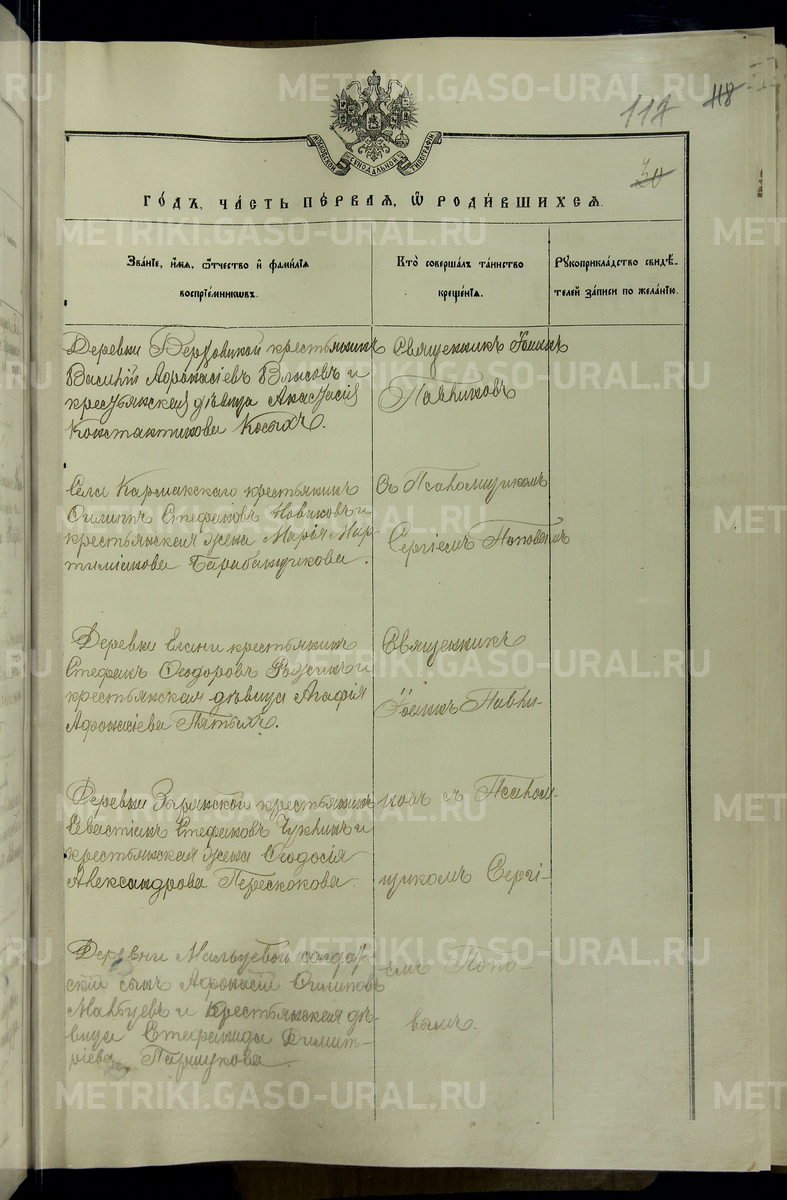 METRIKI.GASO-URAL.RU
117 118
МОСКОВСКОЙ СѴНОДАЛЬНОЙ ТИПОГРАФІИ
30
ГО́ДЪ, ЧА́СТЬ ПЕ́РВАЯ, Ѿ РОДИ́ВШИХСЯ.
Зва́нїе, и҆́мя, ѻ҆́тчество и҆ фами́лїя
воспрїе́мниковъ.
Кто̀ соверша́лъ та́инство
креще́нїя.
Рꙋкоприкла́дство свидѣ́-
телей за́писи по жела́нїю.
Деревни Берзовиной крестьянинъ
Василій Афонасіевъ Власовъ и
крестьянская дѣвица Анастасія
Константинова Косыхъ.
Священникъ Іоаннъ
Павлиновъ
Села Кармакскаго крестьянинъ
Филиппъ Стефановъ Новиковъ и
крестьянская жена Марія Мар-
тиміанова Барабанщикова.
Съ Псаломщикомъ
Сергіемъ Поповымъ
Деревни Елани крестьянинъ
Стефанъ Ѳеодоровъ и
крестьянская дѣвица Агафія
Афонасіева Пятыхъ.
Священникъ
Іоаннъ Павли-
Деревни Зырянской крестьянинъ
Севастіанъ Стефановъ Чукинъ и
крестьянская жена Ѳеодосія
Александрова Перескокова.
новъ съ Псалом-
щикомъ Сергі-
Деревни Мальцевой солдат-
скій сынъ Афонасій Филиповъ
Мальцевъ и крестьянская дѣ-
вица Стефанида Димит-
ріева Паршукова.
емъ Попо-
вымъ.